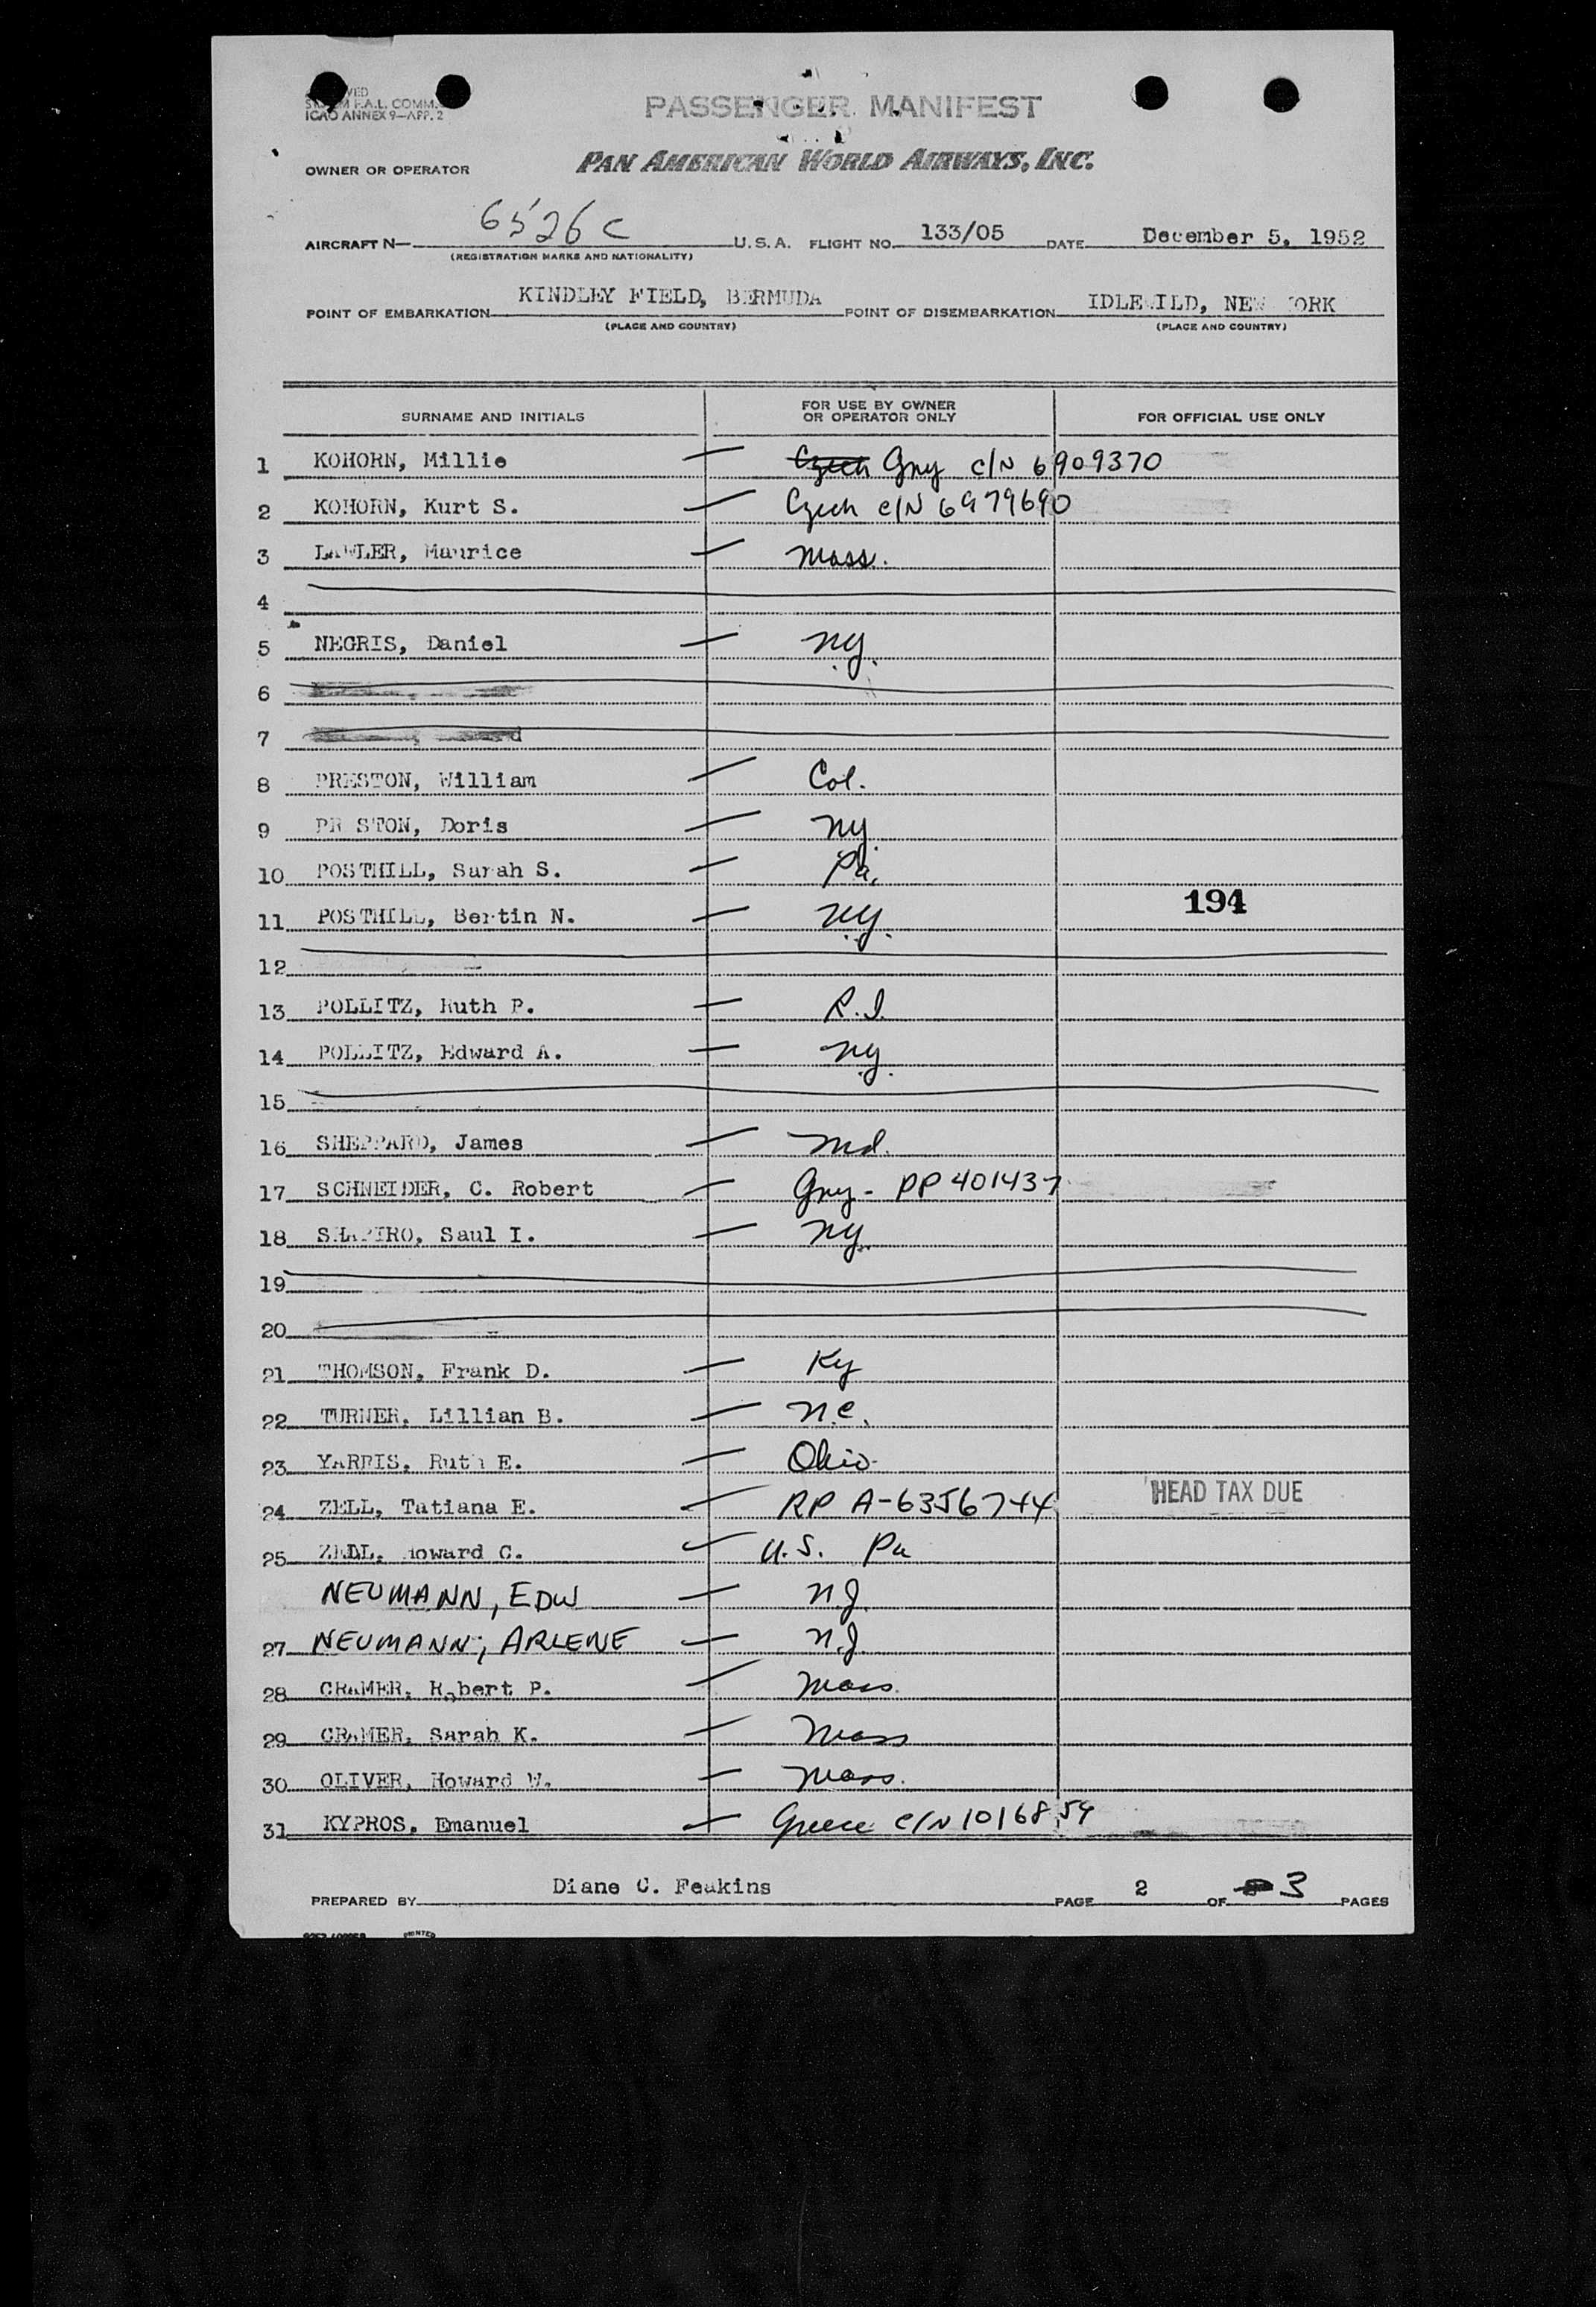 F.A.L. COMM.
ICAO ANNEX 9—APP. 2
PASSENGER MANIFEST
OWNER OR OPERATOR PAN AMERICAN WORLD AIRWAYS, INC.
AIRCRAFT N— 6526C U.S.A. FLIGHT NO. 133/05 DATE December 5, 1952
(REGISTRATION MARKS AND NATIONALITY)
POINT OF EMBARKATION KINDLEY FIELD, BERMUDA POINT OF DISEMBARKATION IDLEWILD, NEW YORK
(PLACE AND COUNTRY) (PLACE AND COUNTRY)
SURNAME AND INITIALS FOR USE BY OWNER OR OPERATOR ONLY FOR OFFICIAL USE ONLY
1 KOHORN, Millie — Czech Gny c/N 6909370
2 KOHORN, Kurt S. — Czech c/N 6979690
3 LAWLER, Maurice — Mass.
4
5 NEGRIS, Daniel — N.Y.
6
7
8 PRESTON, William — Col.
9 PRESTON, Doris — NY.
10 POSTHILL, Sarah S. — Pa.
11 POSTHILL, Bertin N. — N.Y. 194
12
13 POLLITZ, Ruth P. — R.I.
14 POLLITZ, Edward A. — N.Y.
15
16 SHEPPARD, James — Md.
17 SCHNEIDER, C. Robert — Gny - PP 401437
18 SHAPIRO, Saul I. — NY.
19
20
21 THOMSON, Frank D. — Ky
22 TURNER, Lillian B. — N.C.
23 YARRIS, Ruth E. — Ohio
24 ZELL, Tatiana E. — RP A-6356744 HEAD TAX DUE
25 ZELL, Howard C. — U.S. Pa
NEUMANN, EDW — N.J.
27 NEUMANN, ARLENE — N.J.
28 CRAMER, Robert P. — Mass.
29 CRAMER, Sarah K. — Mass
30 OLIVER, Howard W. — Mass.
31 KYPROS, Emanuel — Greece c/N 1016854
PREPARED BY Diane C. Feakins PAGE 2 OF 3 PAGES
PRINTED